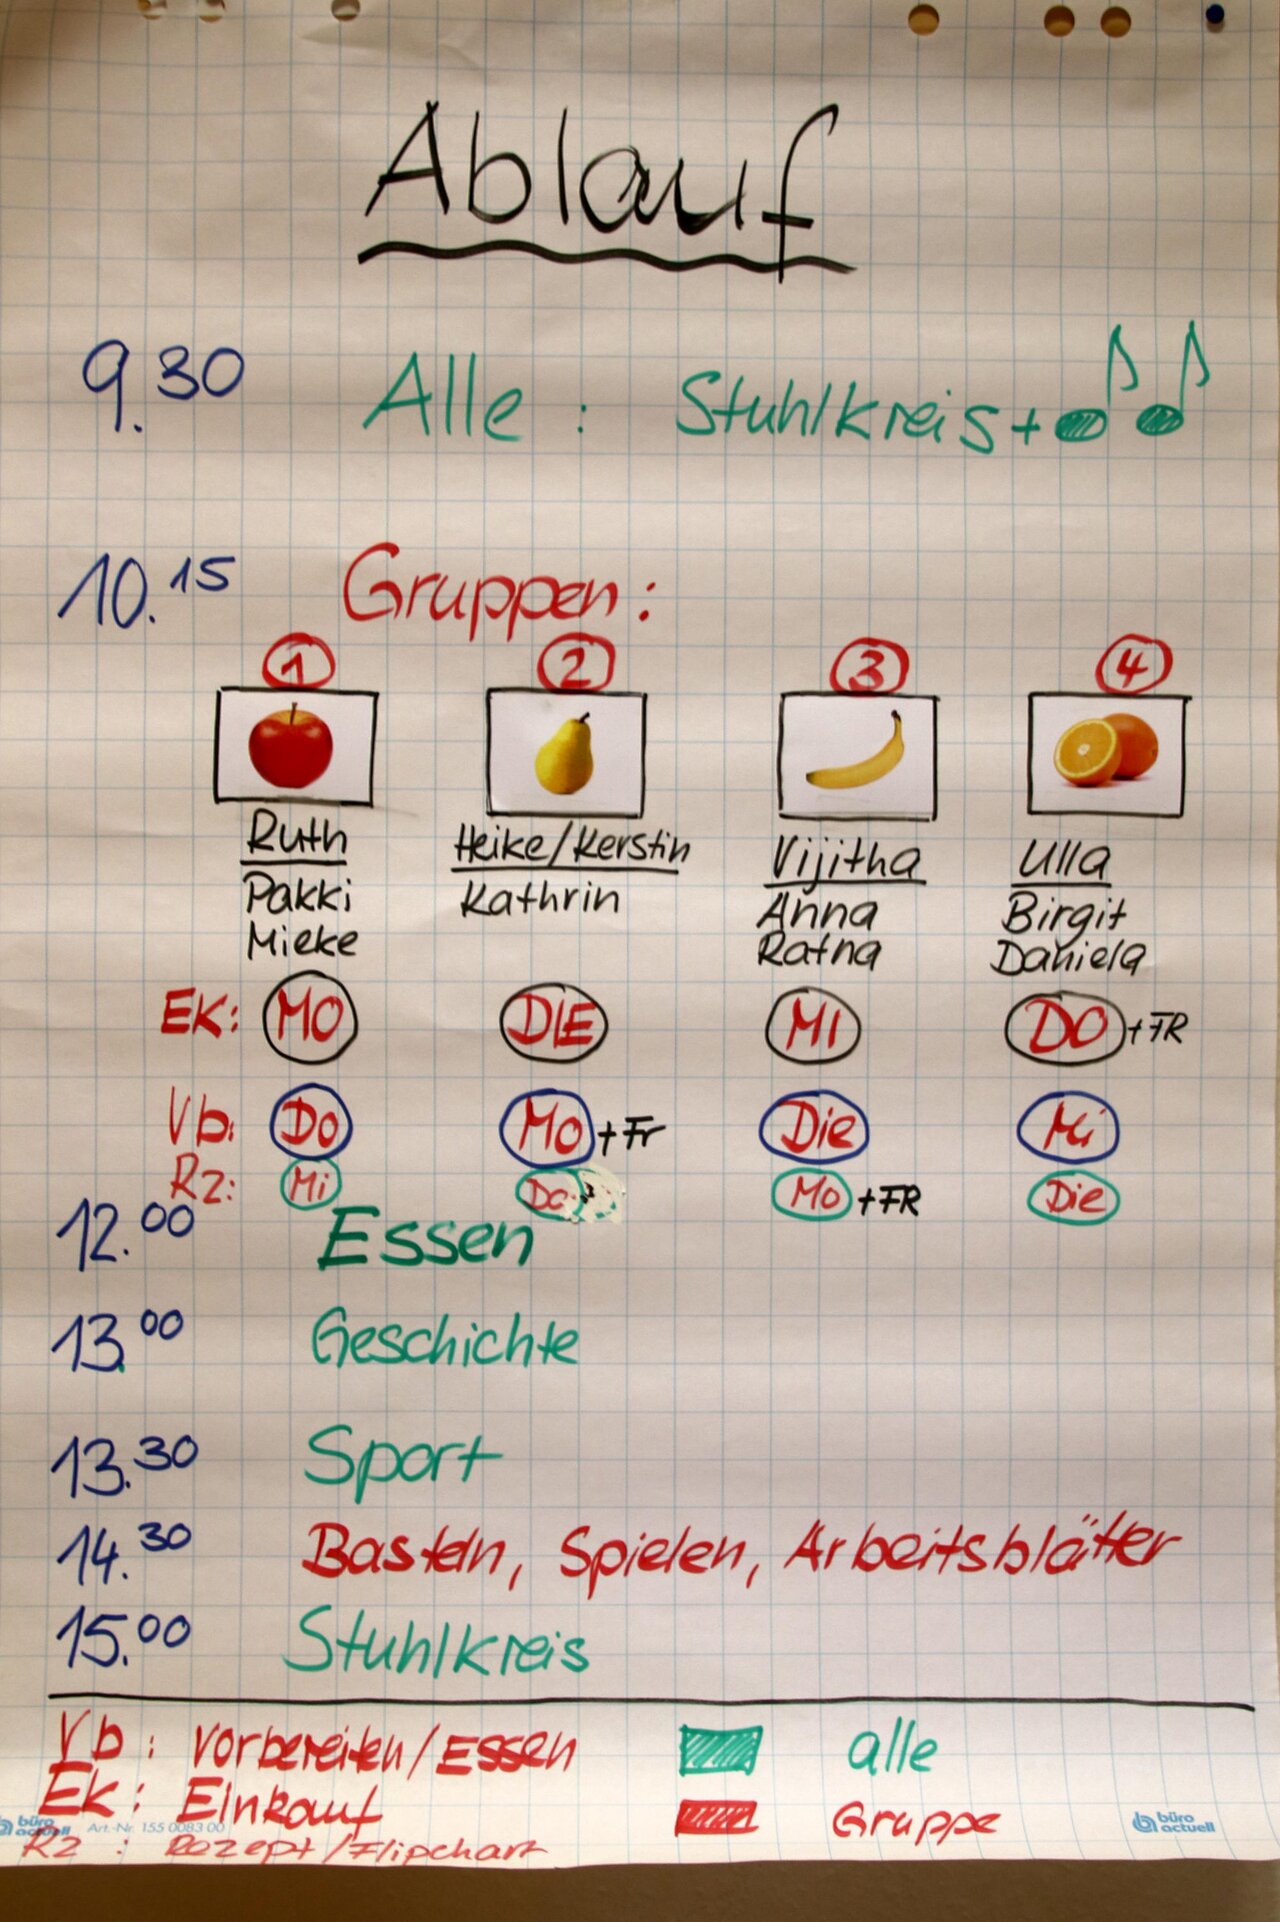 Ablauf
9.30 Alle: Stuhlkreis+
10.15 Gruppen:
1 2 3 4
Ruth Heike/Kerstin Vijitha Ulla
Pakki Kathrin Anna Birgit
Mieke Ratna Daniela
EK: MO DIE MI DO +FR
Vb: Do Mo +Fr Die Mi
Rz: Mi Do Mo +FR Die
12.00 Essen
13.00 Geschichte
13.30 Sport
14.30 Basteln, Spielen, Arbeitsblätter
15.00 Stuhlkreis
Vb: Vorbereiten/Essen alle
EK: Einkauf Gruppe
büro actuell Art.-Nr. 155 0083 00 büro actuell
Rz: Rezept/Flipchart